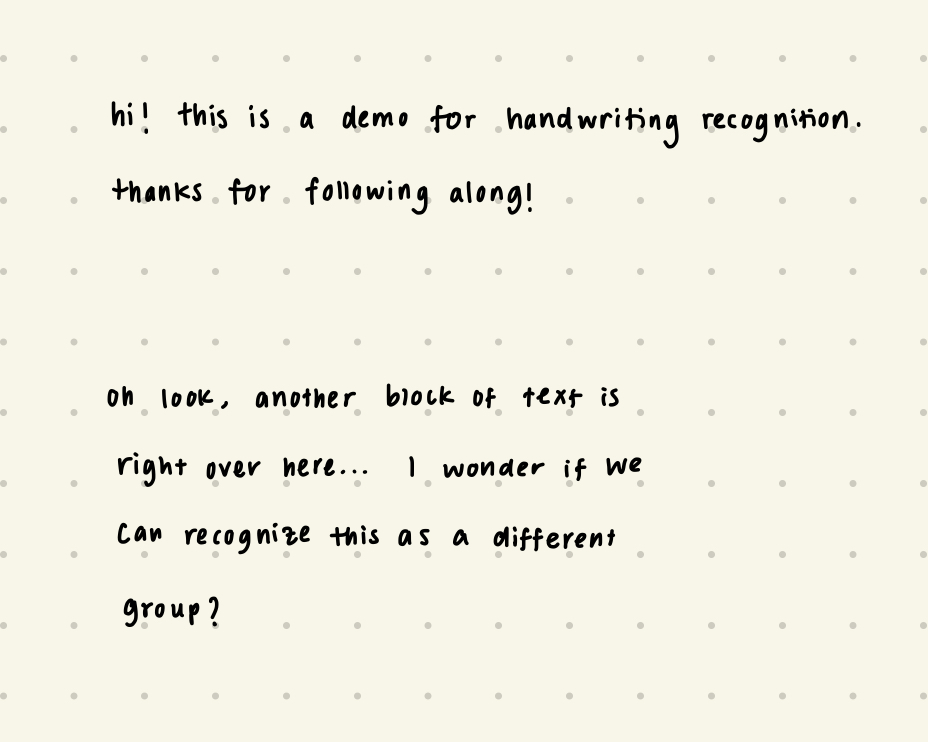 hi! this is a demo for handwriting recognition.
thanks for following along!
oh look, another block of text is
right over here... I wonder if we
can recognize this as a different
group?